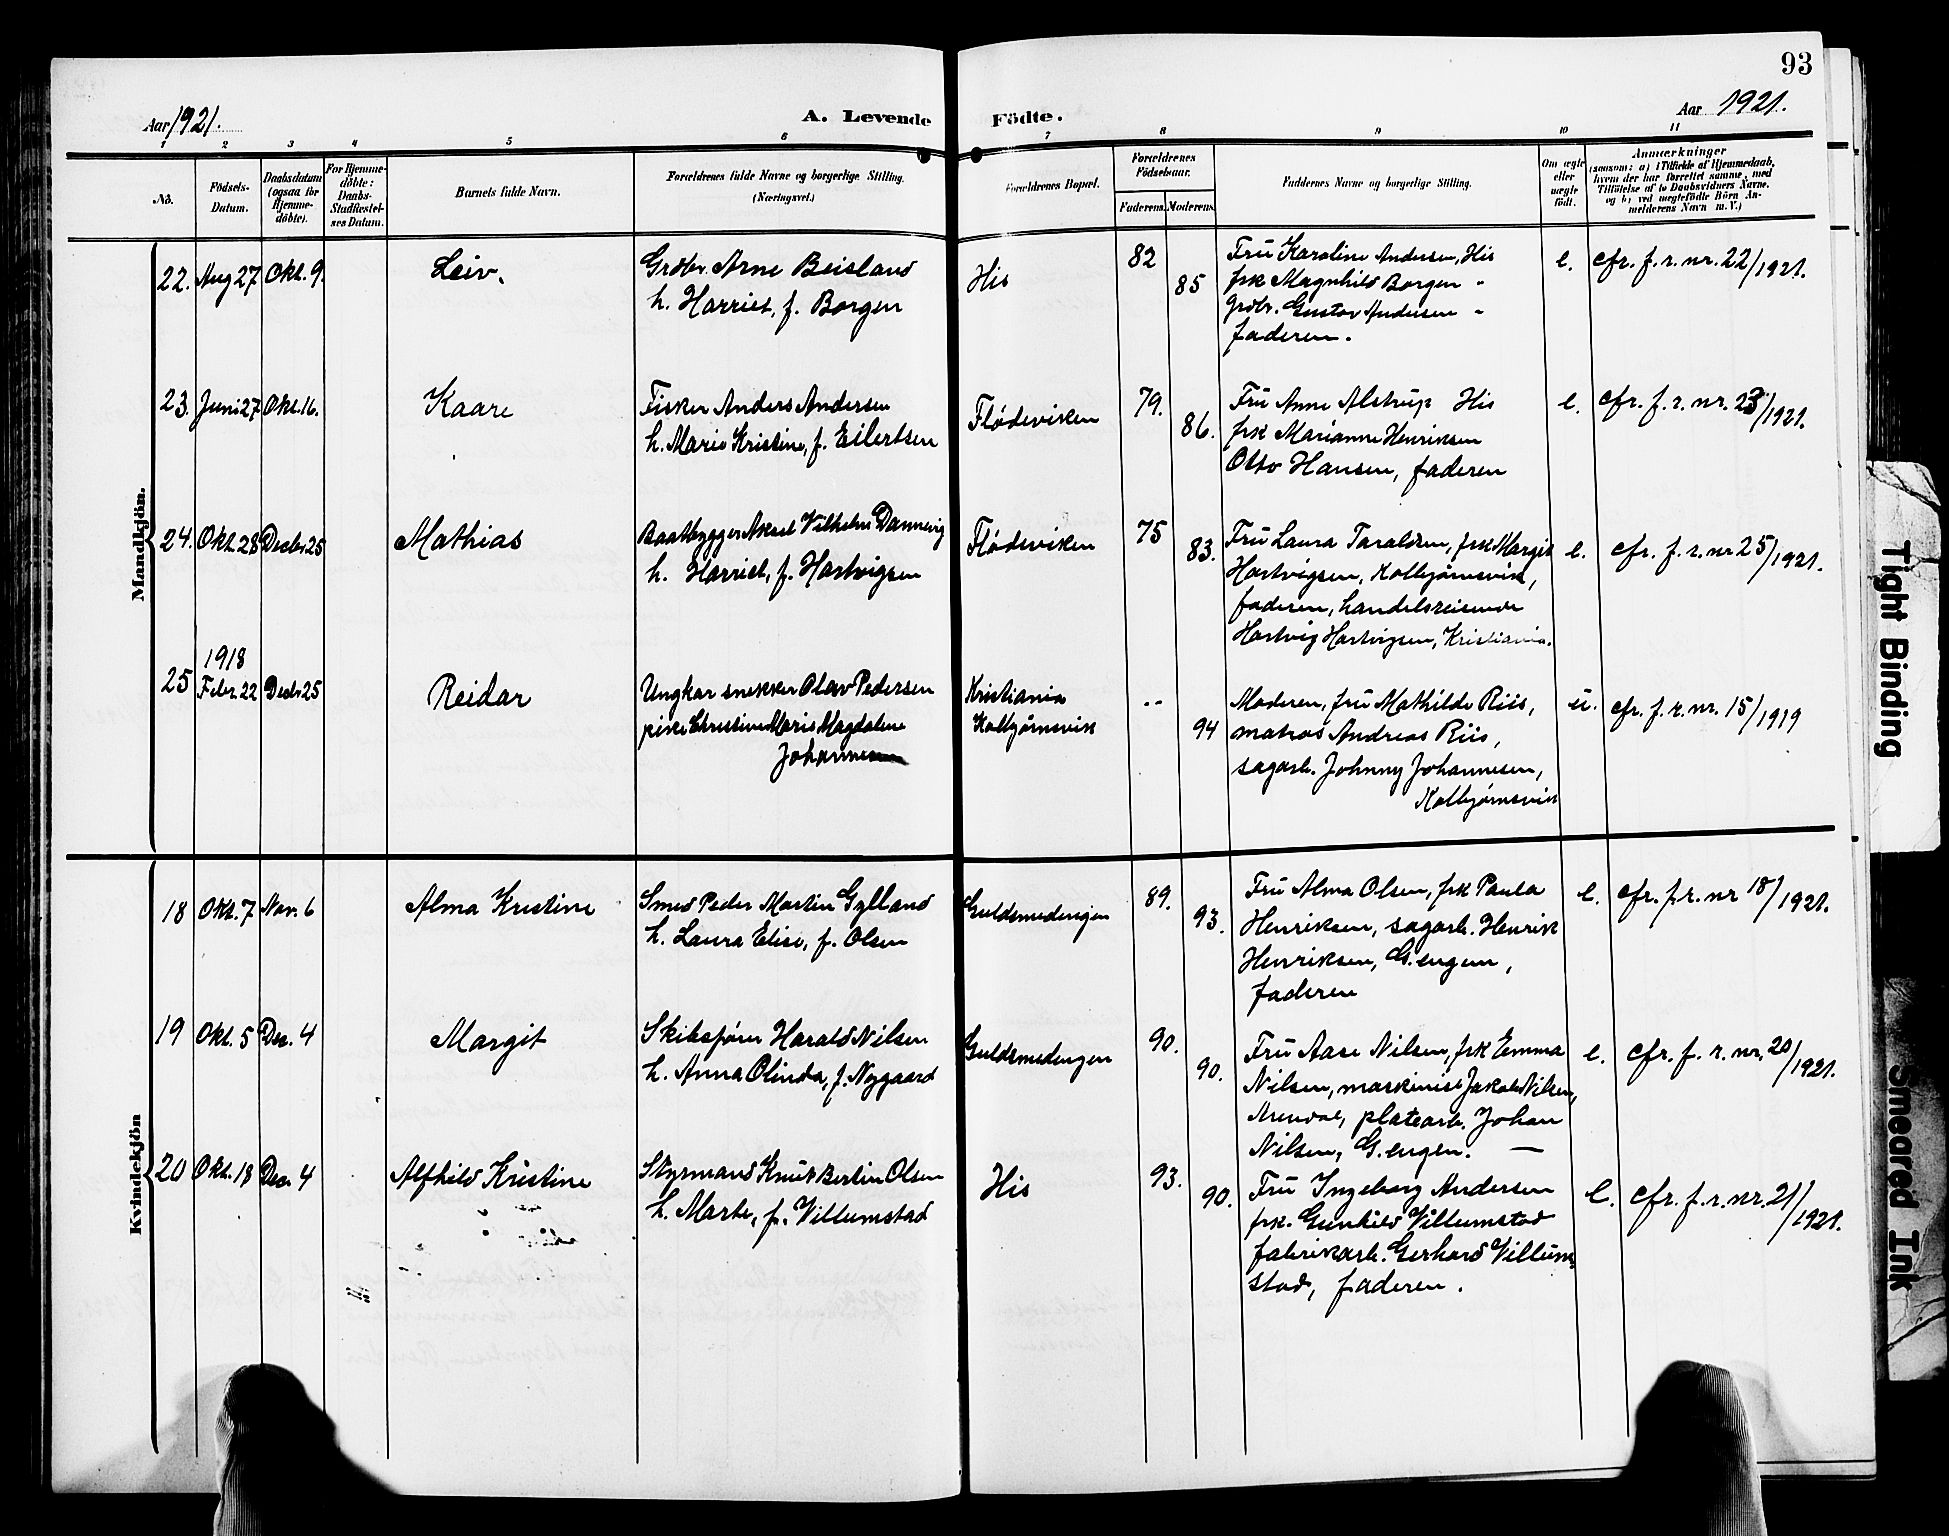 93
Aar 1921.
A. Levende Födte.
Aar 1921.
1 2 3 4 5 6 7 8 9 10 11
No.
Födsels-Datum.
Daabsdatum (ogsaa for Hjemme-döbte).
For Hjemme-döbte: Daabs-Stadfæstel-ses Datum.
Barnets fulde Navn.
Forældrenes fulde Navne og borgerlige Stilling. (Næringsvei.)
Forældrenes Bopæl.
Forældrenes Födselsaar.
Faderens. Moderens.
Faddernes Navne og borgerlige Stilling.
Om ægte eller uægte født.
Anmærkninger
(saasom: a) i Tilfælde af Hjemmedaab,
hvem der har forrettet samme, med
Tilföielse af to Daabsvidners Navne.
og b) ved uægtefödte Börn An-
melderens Navn m. V.)
Mandkjön.
22. Aug 27 Okt. 9. Leiv.
Grdbr. Arne Beisland
h. Harriet, f. Borgen
His
82
85
Fru Karoline Andersen, His
frk Magnhild Borgen "
grdbr. Gustav Andersen "
faderen.
e. cfr. f. r. nr. 22/1921.
23. Juni 27 Okt. 16. Kaare
Fisker Anders Andersen
h. Marie Kristine, f. Eilertsen
Flødeviken
79.
86.
Fru Anne Alstrup His
frk Marianne Henriksen
Otto Hansen, faderen
e. cfr. f. r. nr. 23/1921.
24. Okt. 28 Decbr 25 Mathias
Baatbygger Aksel Vilhelm Dannevig
h. Harriet, f. Hartvigsen
Flødeviken
75
83.
Fru Laura Taraldsen, frk Margit
Hartvigsen, Kolbjørnsvik,
faderen, handelsreisende
Hartvig Hartvigsen, Kristiania.
e. cfr. f. r. nr 25/1921.
25 1918
Febr. 22 Decbr 25 Reidar
Ungkar snekker Olav Pedersen
pike Christine Marie Magdalene
Johannesen
Kristiania
Kolbjørnsvik
--
94
Moderen, fru Mathilde Riis,
matros Andreas Riis,
sagarb. Johnny Johannesen,
Kolbjørnsvik
u. cfr. f. r. nr. 15/1919
Kvindekjön
18 Okt. 7 Nov. 6 Alma Kristine
Smed Peder Martin Gylland
h. Laura Elise, f. Olsen
Guldsmedengen
89.
93.
Fru Alma Olsen, frk Paula
Henriksen, sagarb. Henrik
Henriksen, G.engen,
faderen
e. cfr. f. r. nr 18/1921.
19 Okt. 5 Dec. 4 Margit
Skibsfører Harald Nilsen
h. Anna Olinda, f. Nygaard
Guldsmedengen
90.
90.
Fru Aase Nilsen, frk Emma
Nilsen, maskinist Jakob Nilsen,
Arendal, platearb. Johan
Nilsen, G.engen. —
e. cfr. f. r. nr. 20/1921.
20 Okt. 18 Dec. 4 Alfhild Kristine
Styrmand Knut Bertin Olsen
h. Marte, f. Villumstad
His
93.
90.
Fru Ingeborg Andersen
frk. Gunhild Villumstad
fabrikarb. Gerhard Villum-
stad, faderen.
e. cfr. f. r. nr. 21/1921.
Tight Binding
Smeared Ink